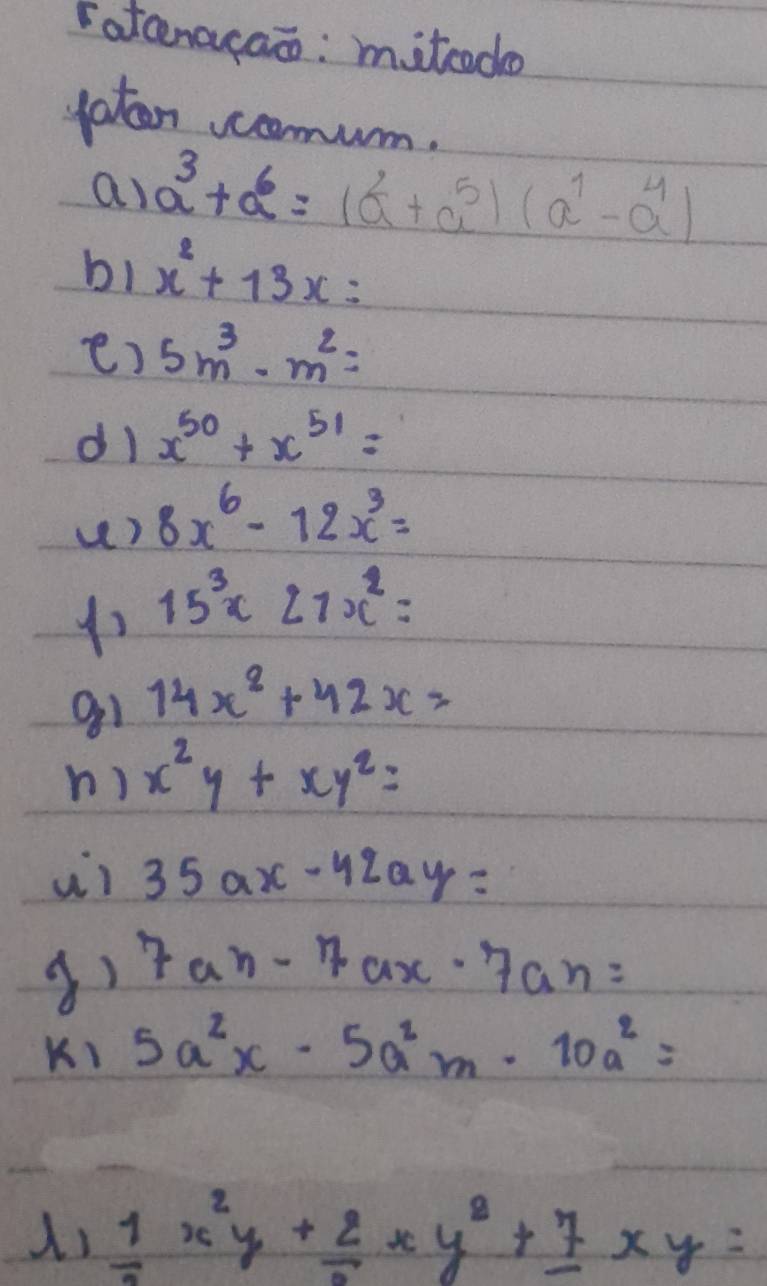 Fatoração: método
fator comum.
a) a³ + a⁶ = (a² + a⁵) (a¹ - a⁴)
b) x² + 13x =
c) 5m³ - m² =
d) x⁵⁰ + x⁵¹ =
e) 8x⁶ - 12x³ =
f) 15³x 21x² =
g) 14x² + 42x =
h) x²y + xy² =
i) 35ax - 42ay =
j) 7an - 7ax - 7an =
k) 5a²x - 5a²m - 10a² =
l) 1 x²y + 2 xy² + 7 xy =